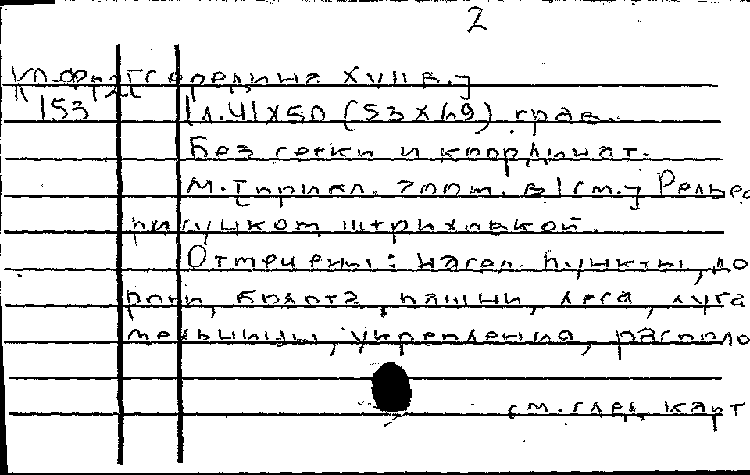 2
Кп.Фр2 [середина XVII в.]
153 1л. 41х50 (53х69) грав.
Без сетки и координат.
М. [прибл. 200м. в 1см.] Рельеф
рисунком, штриховкой.
Отмечены: насел. пункты, до
роги, болота, пашни, леса, луга
мельницы, укрепления, располо
см. след. карт